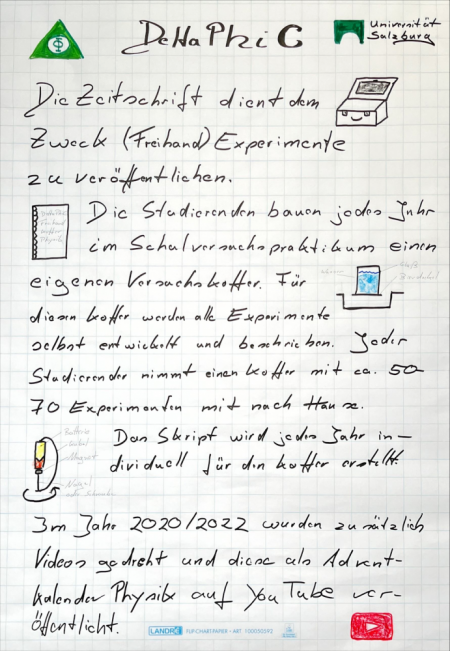 DeltaPhi C
Universität
Salzburg
Die Zeitschrift dient dem
Zweck (Freihand) Experimente
zu veröffentlichen.
Die Studierenden bauen jedes Jahr
im Schulversuchspraktikum einen
eigenen Versuchskoffer. Für
diesen Koffer werden alle Experimente
selbst entwickelt und beschrieben. Jeder
Studierender nimmt einen Koffer mit ca. 50-
70 Experimenten mit nach Hause.
Batterie
Nagel
Magnet
Das Skript wird jedes Jahr in-
dividuell für den Koffer erstellt.
Im Jahr 2020/2022 wurden zusätzlich
Videos gedreht und diese als Advent-
kalender Physik auf YouTube ver-
öffentlicht.
LANDRÉ FLIPCHARTPAPIER - ART. 100050592